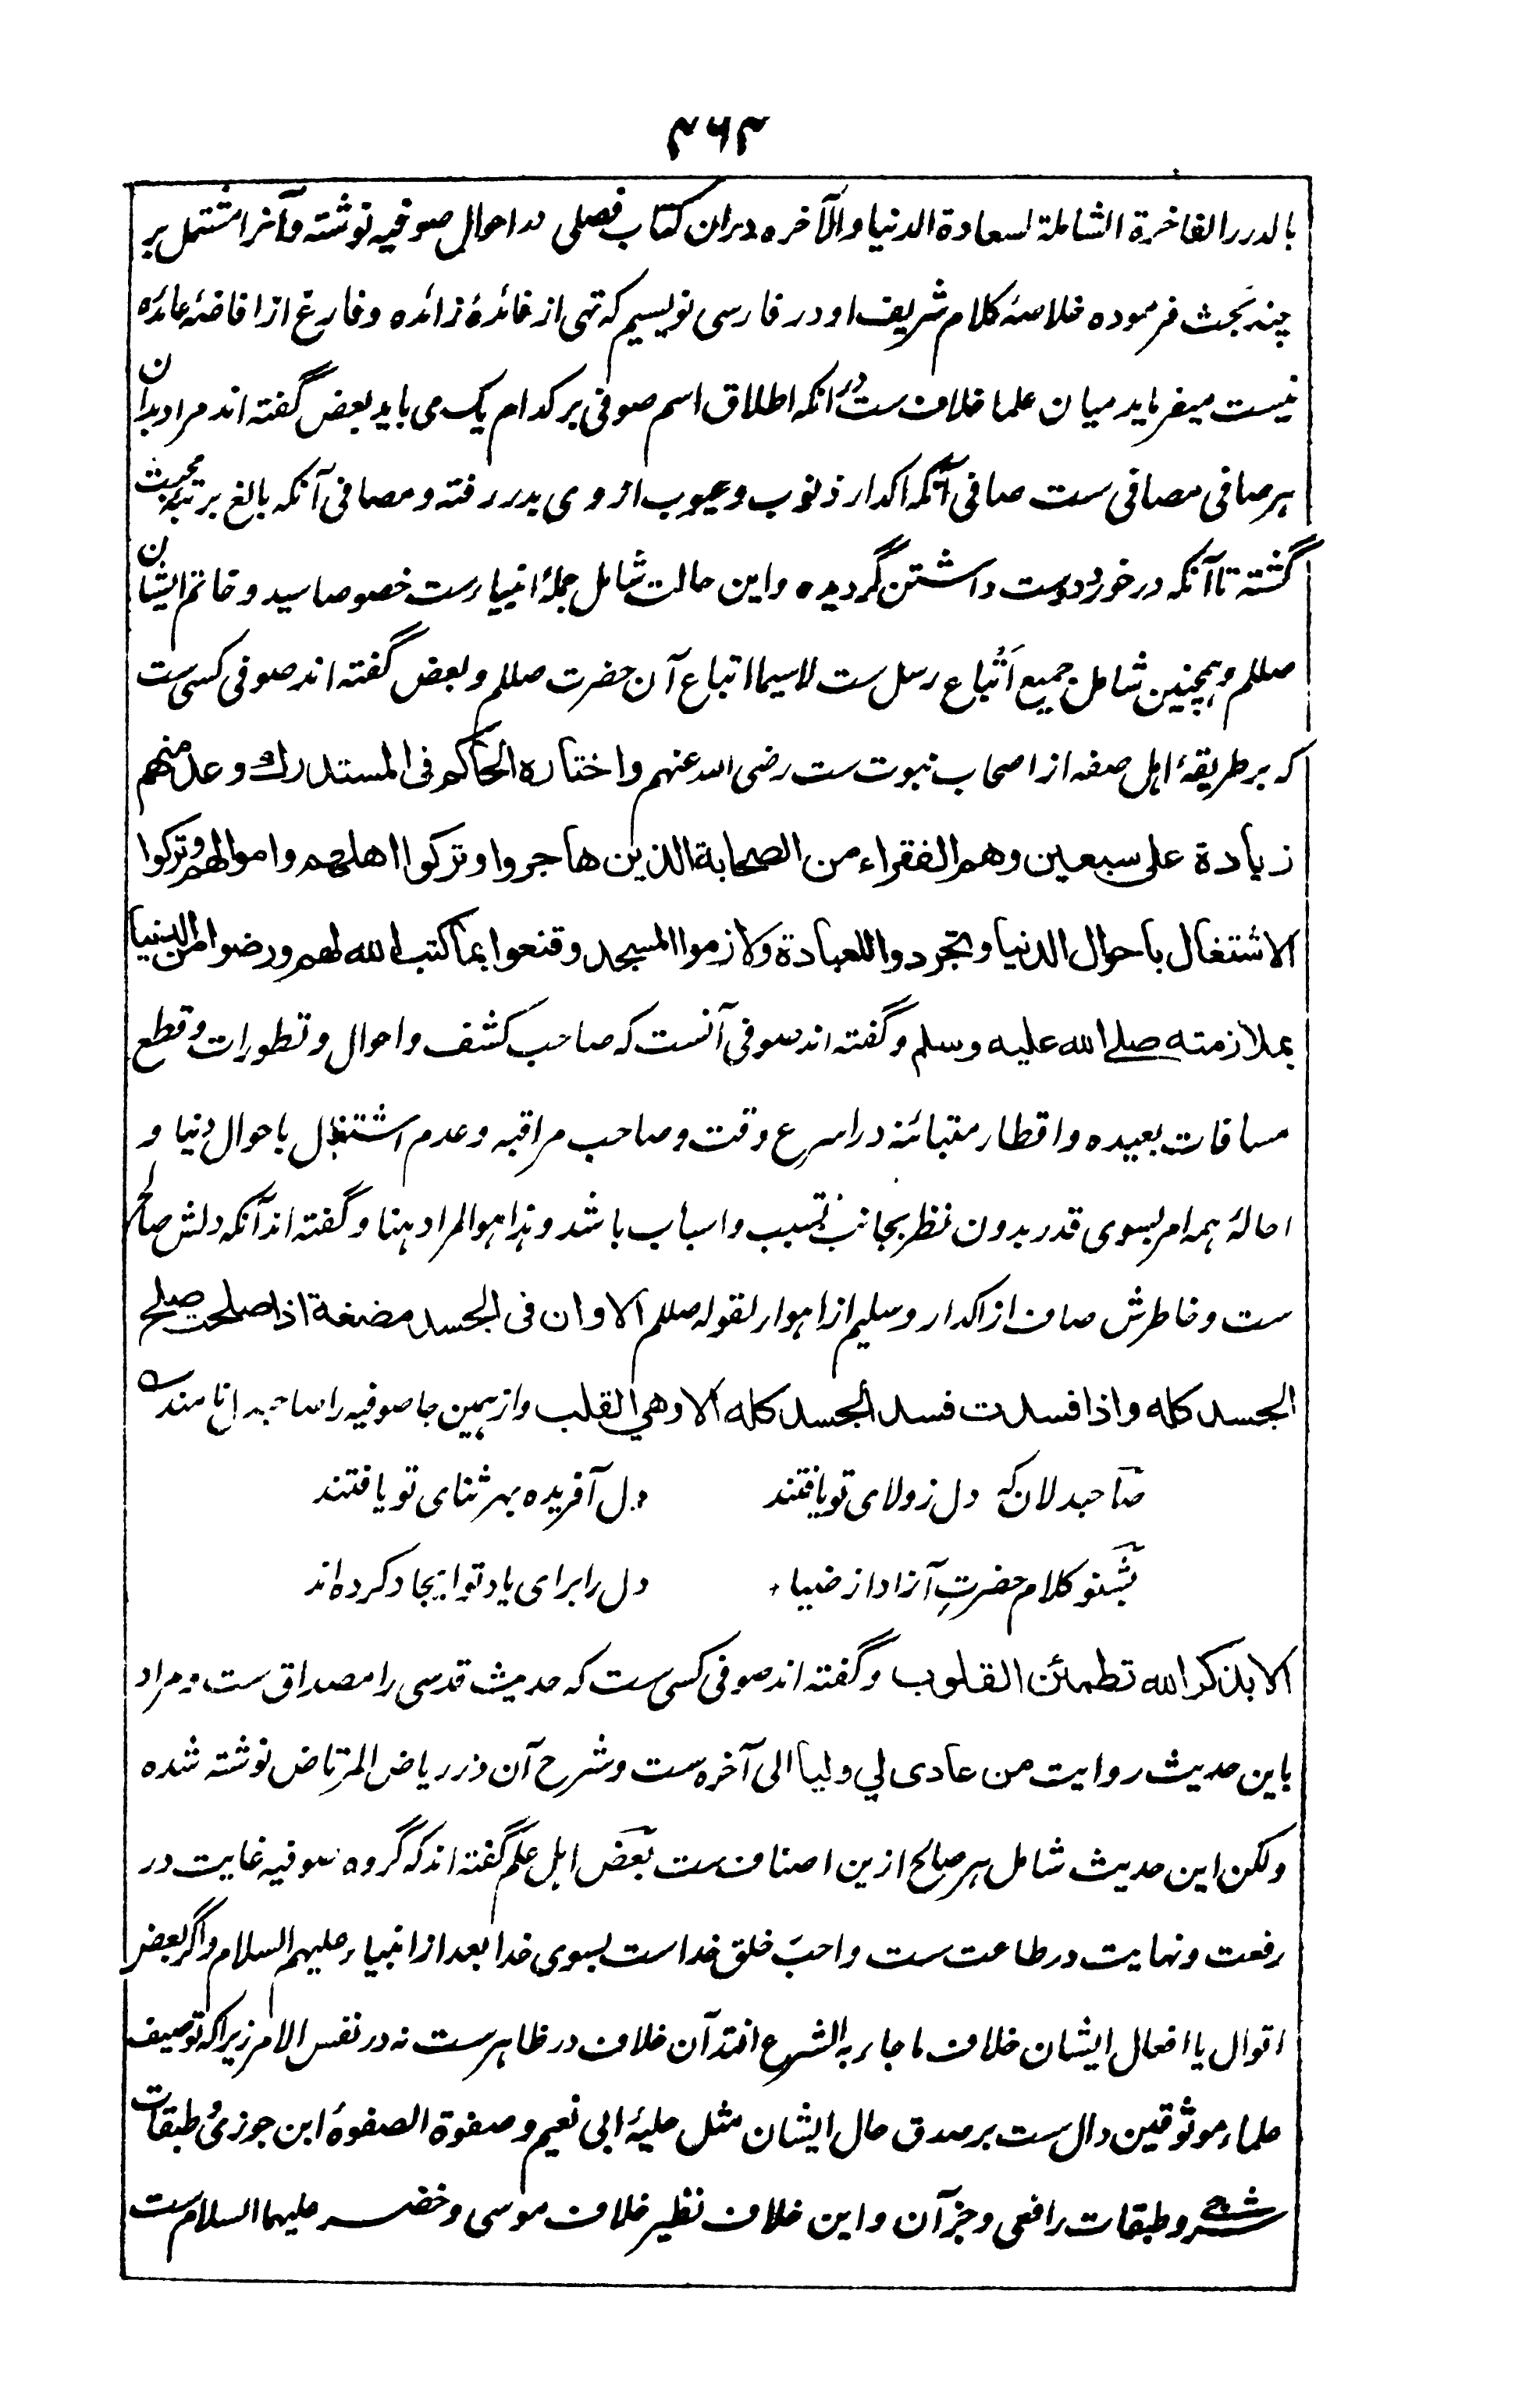 ۴۶۳
بالدرر الفاخرة الشاملة لسعادة الدنیا والآخره دران کتاب فصلی در احوال صوفیه نوشته و آنرا مشتمل بر
چند بحث فرموده خلاصۀ کلام شریف او در فارسی نویسیم که تهی از فائدۀ زائده و فارغ از افاضۀ عائده
نیست میفرماید میان علما خلاف ست در انکه اطلاق اسم صوفی بر کدام یک می باید بعض گفته اند مراد بدان
هر صافی مصافی ست صافی آنکه اکدار ذنوب و عیوب از وی بدر رفته و مصافی آنکه بالغ برتبۀ محبت
گشته تا آنکه در خور دوست داشتن گردیده و این حالت شامل جملۀ انبیا رست خصوصا سید و خاتم ایشان
صللم و همچنین شامل جمیع اَتباع رسل ست لاسیما اتباع آن حضرت صللم و بعض گفته اند صوفی کسی ست
که بر طریقۀ اهل صفه از اصحاب نبوت ست رضی الله عنهم واختاره الحاکم فی المستدرك وعد منهم
زیادة علی سبعین وهم الفقراء من الصحابة الذین هاجروا وترکوا اهلهم واموالهم وترکوا
الاشتغال باحوال الدنیا وتجردوا للعبادة ولازموا المسجد وقنعوا بما کتب الله لهم ورضوا من الدنیا
بملازمته صلے الله علیه وسلم و گفته اند صوفی آنست که صاحب کشف و احوال و تطورات و قطع
مسافات بعیده و اقطار متبائنه در اسرع وقت و صاحب مراقبه و عدم اشتغال باحوال دنیا و
احالۀ همه امر بسوی قدر بدون نظر بجانب تسبب و اسباب باشد و هذا هو المراد هنا و گفته اند آنکه دلش صالح
ست و خاطرش صاف از اکدار و سلیم از اهوار لقوله صللم الا وان فی الجسد مضغة اذا صلحت صلح
الجسد کله واذا فسدت فسد الجسد کله الا وهي القلب و از همین جا صوفیه را صاحبدلان نامند ه
صاحبدلان که دل ز ولای تو یافتند دل آفریده بهر ثنای تو یافتند
بشنو کلام حضرتِ آزاد از ضیاء دل را برای یاد تو ایجاد کرده اند
الا بذکر الله تطمئن القلوب و گفته اند صوفی کسی ست که حدیث قدسی را مصداق ست و مراد
باین حدیث روایت من عادی لي ولیا الی آخره ست و شرح آن در ریاض المرتاض نوشته شده
ولکن این حدیث شامل هر صالح ازین اصناف ست بعض اهل علم گفته اند که گروه صوفیه غایت در
رفعت و نهایت در طاعت ست و احبّ خلق خداست بسوی خدا بعد از انبیاء علیهم السلام و اگر بعض
اقوال یا افعال ایشان خلاف ما جاء به الشرع افتد آن خلاف در ظاهرست نه در نفس الامر زیرا که توصیف
علماء موثوقین دال ست بر صدق حال ایشان مثل حلیۀ ابی نعیم و صفوة الصفوۀ ابن جوزی و طبقات
و طبقات رافعی و جز آن و این خلاف نظیر خلاف موسی و خضر علیهما السلام ست